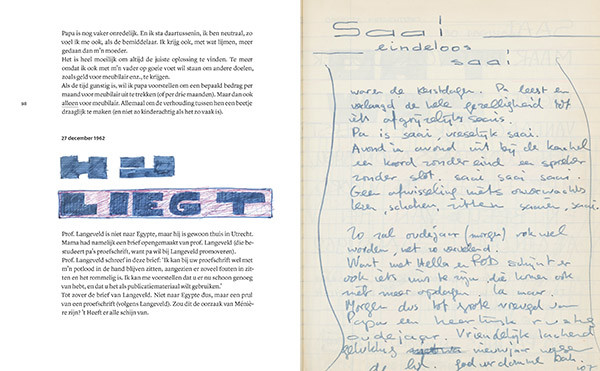 Papa is nog vaker onredelijk. En ik sta daartussenin, ik ben neutraal, zo
voel ik me ook, als de bemiddelaar. Ik krijg ook, met wat lijmen, meer
gedaan dan m’n moeder.
Het is heel moeilijk om altijd de juiste oplossing te vinden. Te meer
omdat ik ook met m’n vader op goeie voet wil staan om andere doelen,
zoals geld voor meubilair enz., te krijgen.
Als de tijd gunstig is, wil ik papa voorstellen om een bepaald bedrag per
maand voor meubilair uit te trekken (of per drie maanden). Maar dan ook
alleen voor meubilair. Allemaal om de verhouding tussen hen een beetje
draaglijk te maken (en niet zo kinderachtig als het zo vaak is).
27 december 1962
HIJ
LIEGT
Prof. Langeveld is niet naar Egypte, maar hij is gewoon thuis in Utrecht.
Mama had namelijk een brief opengemaakt van prof. Langeveld (die be-
studeert pa’s proefschrift, want pa wil bij Langeveld promoveren).
Prof. Langeveld schreef in deze brief: ‘Ik kan bij uw proefschrift wel met
m’n potlood in de hand blijven zitten, aangezien er zoveel fouten in zit-
ten en het rommelig is. Ik kan me voorstellen dat u er nu schoon genoeg
van hebt, en dat u het als publicatiemateriaal wilt gebruiken.’
Tot zover de brief van Langeveld. Niet naar Egypte dus, maar een prul
van een proefschrift (volgens Langeveld). Zou dit de oorzaak van Méniè-
re zijn? ’t Heeft er alle schijn van.
Saai
eindeloos
saai
waren de kerstdagen. Pa leest en
verlaagd de hele gezelligheid tot
iets afgrijzelijks saais.
Pa is saai, vreselijk saai.
Avond in avond uit bij de kachel
een koord zonder eind een speler
zonder slot. saai saai saai.
Geen afwisseling niets onverwachts
lezen, schaken, zitten saaien, saai.
Zo zal oudejaar (morgen) ook wel
worden, net zo
Want met Hella en POD schijnt er
ook iets mis te zijn, die komen ook
niet meer opdagen. Ja maar.
Morgen dus tot grote vreugd van
Papa een heerlijk rustig
oudejaar. Vriendelijk lachend
gelukkig nieuwjaar wensen
107